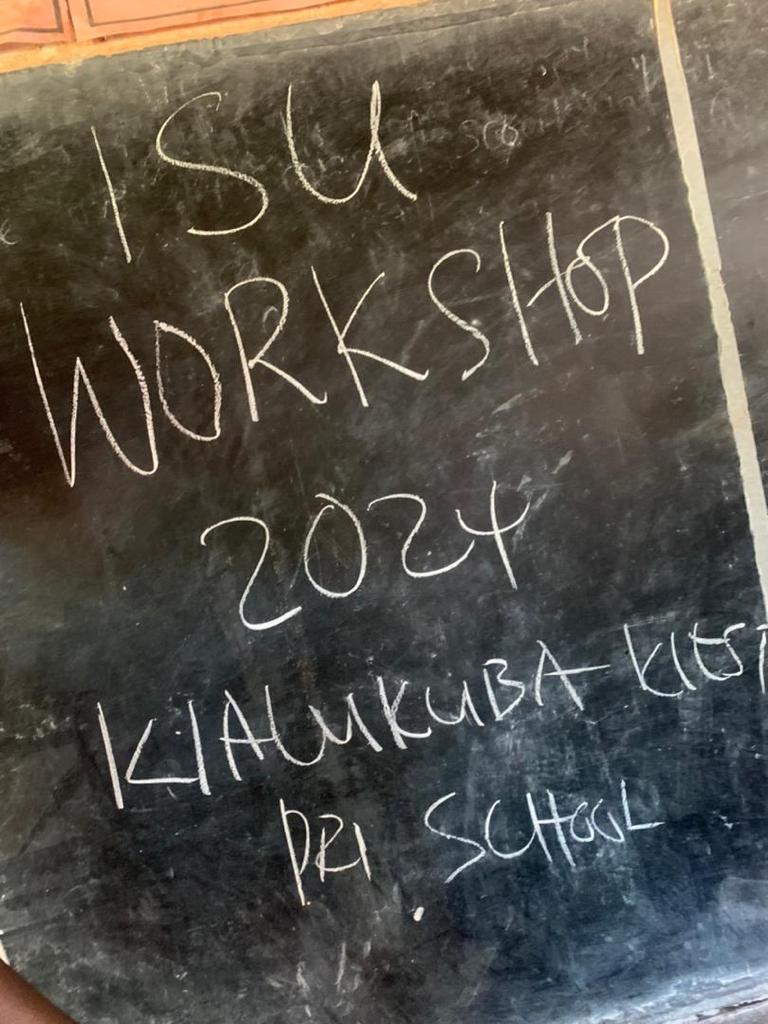 ISU
WORKSHOP
2024
KIALUKUBA-
PRI. SCHOOL